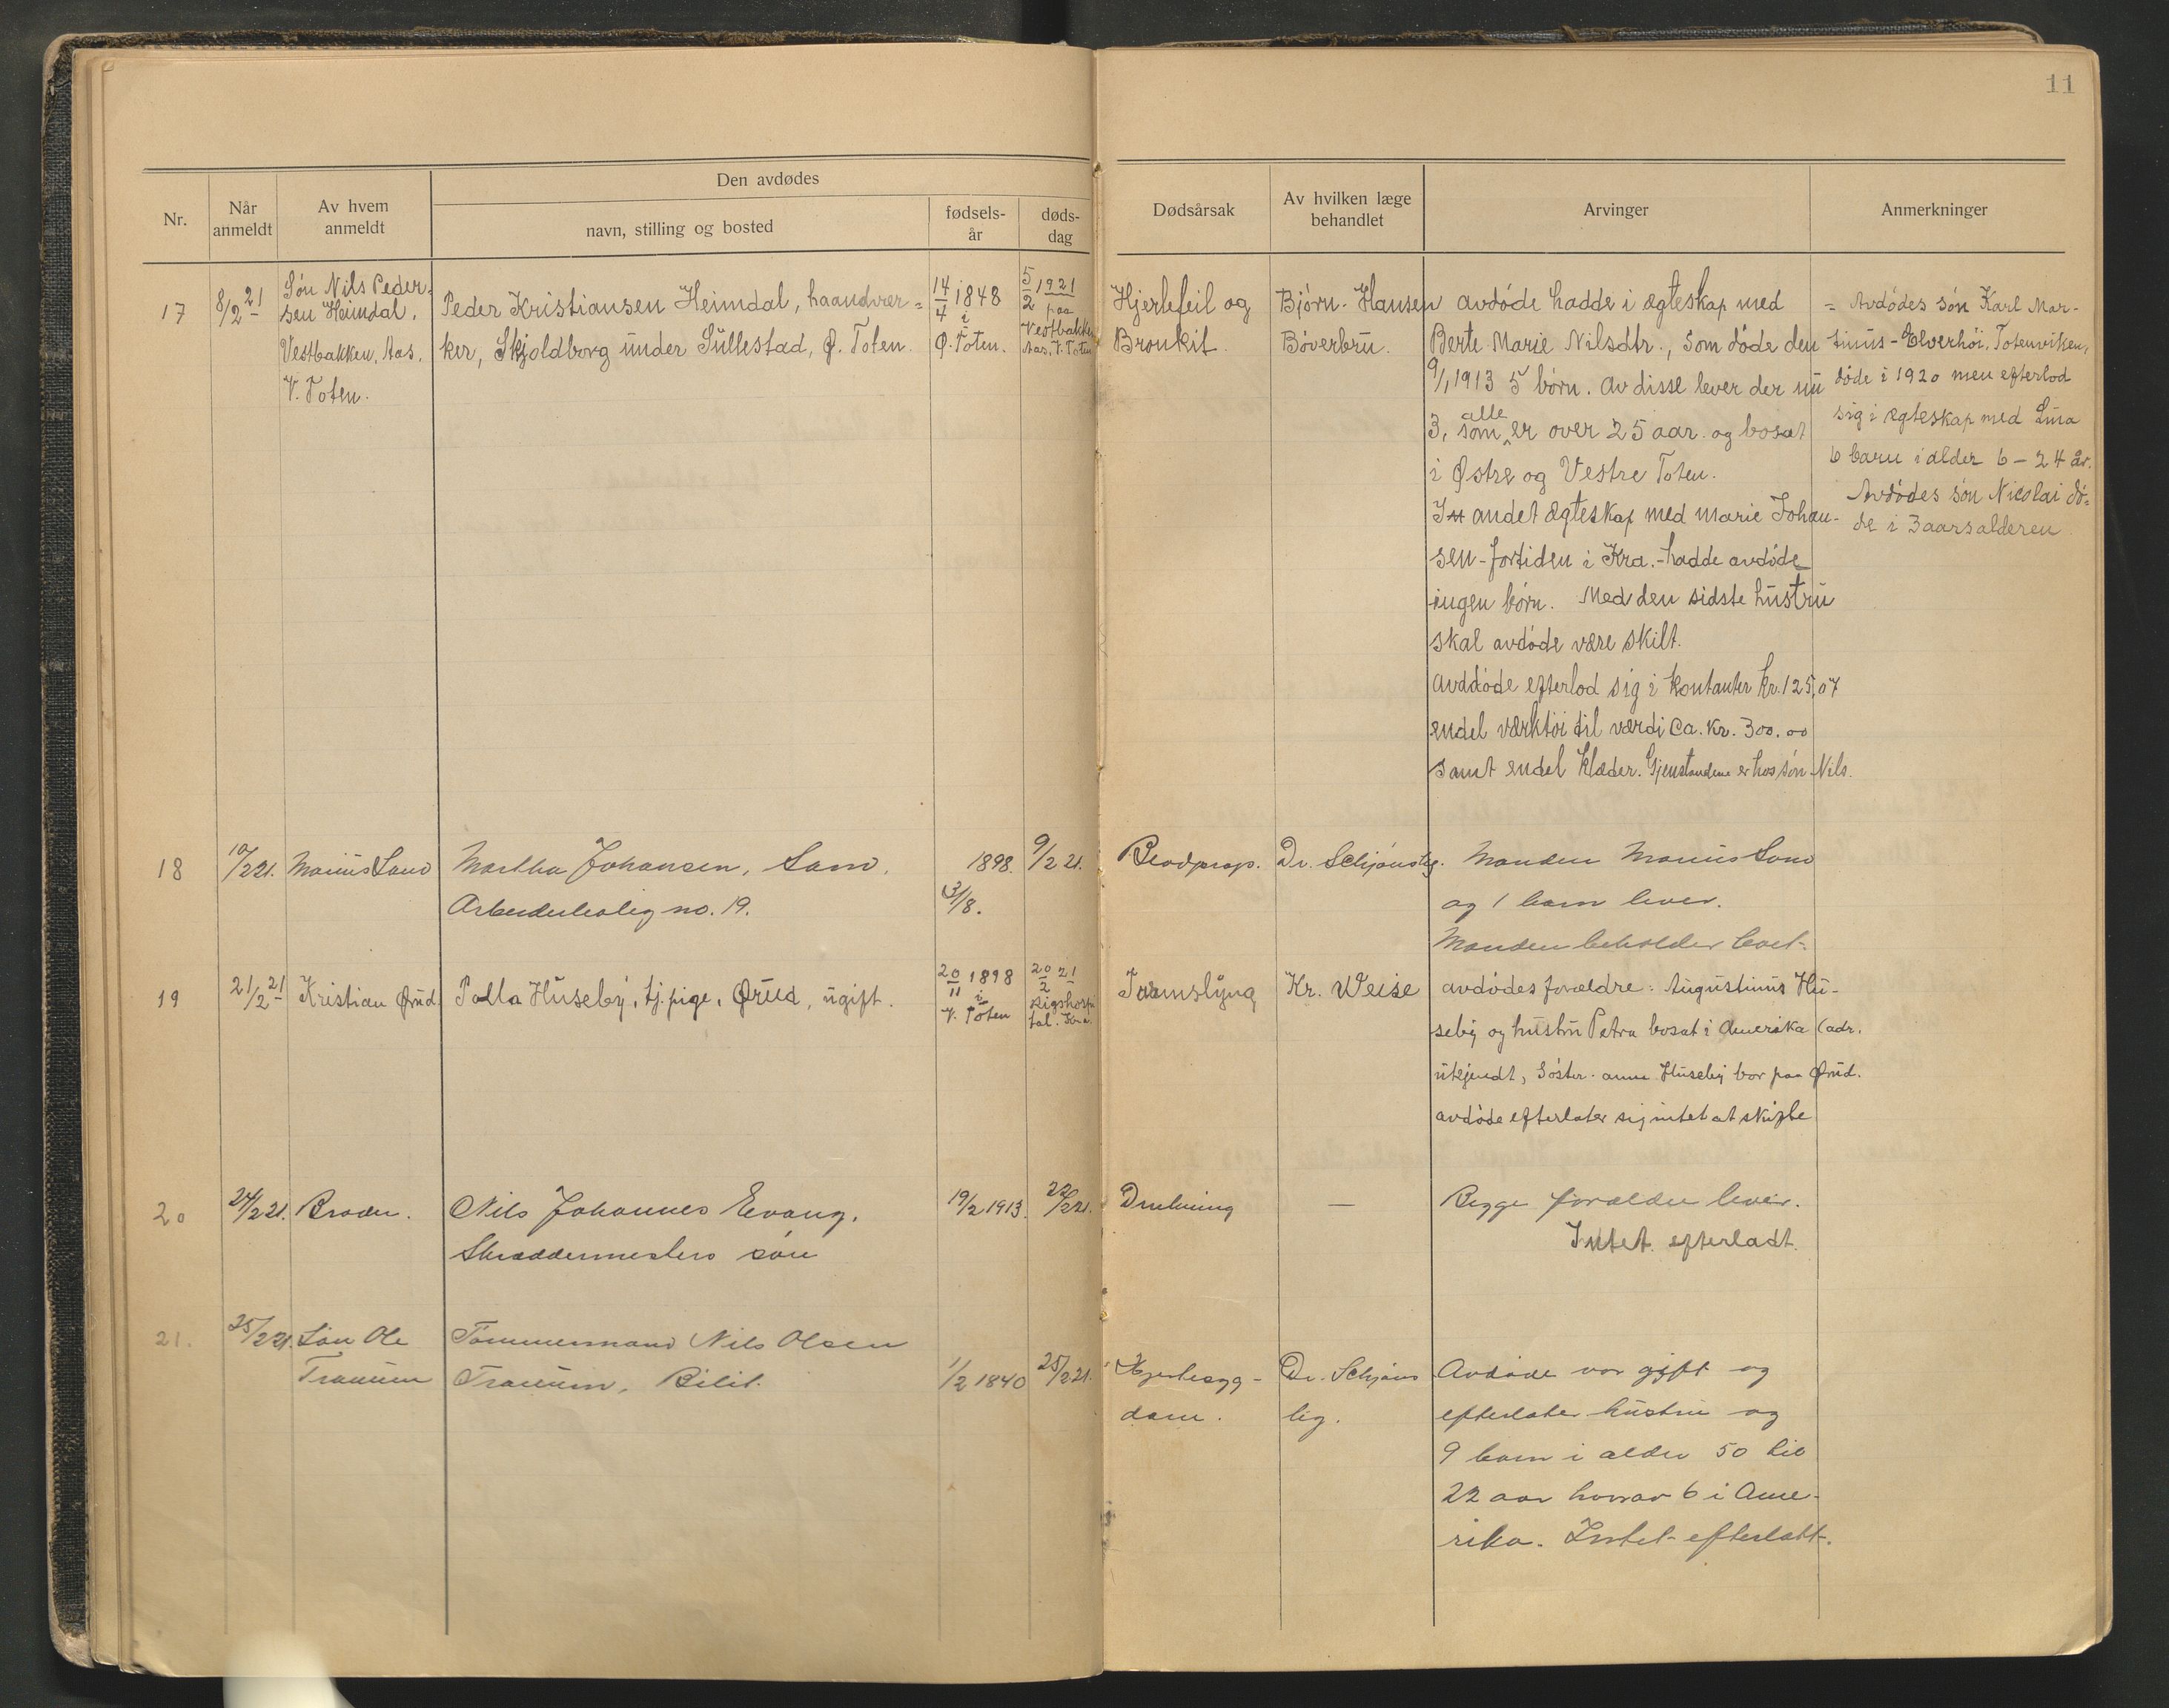 11
Den avdødes
Nr.
Når anmeldt
Av hvem anmeldt
navn, stilling og bosted
fødsels-år
døds-dag
Dødsårsak
Av hvilken læge behandlet
Arvinger
Anmerkninger
17
8/2 21
Søn Nils Peder-
sen Heimdal,
Vestbakken, Aas,
V. Toten.
Peder Kristiansen Heimdal, haandver=
ker, Skjoldborg under Sullestad, Ø. Toten.
14/4 1848
i
Ø. Toten.
5/2 1921
paa
Vestbakken
Aas, V. Toten
Hjertefeil og
Bronkit.
Bjørn-Hansen
Bøverbru.
Avdøde hadde i ægteskap med
Berte Marie Nilsdtr., som døde den
9/1 1913 5 børn. Av disse lever der nu
3, som alle er over 25 aar og bosat
i Østre og Vestre Toten.
I andet ægteskap med Marie Johan-
sen - fortiden i Kra. - hadde avdøde
ingen børn. Med den sidste hustru
skal avdøde være skilt.
Avddøde efterlod sig i kontanter kr. 125,07
endel værktøi til værdi ca. kr. 300.00
samt endel klæder. Gjenstandene er hos søn Nils.
= Avdødes søn Karl Mar-
tinius - Elverhøi, Totenviken,
døde i 1920 men efterlod
sig i ægteskap med Lina
6 barn i alder 6 - 24 år.
Avdødes søn Nicolai dø-
de i 3aarsalderen
18
10/2 21.
Marius Sand
Martha Johansen, Sand.
Arbeiderbolig no. 19.
1898.
31/8.
9/2 21.
Blodprop.
Dr. Schjønsbg.
Manden Marius Sand
og 1 barn lever.
Manden beholder boet.
19
21/2 21
Kristian Ørud
Palla Huseby, tj.pige, Ørud, ugift.
20/11 1898
i
V. Toten
20/2 21
Rigshospi
tal. Kra.
Tarmslyng
Kr. Weise
avdødes forældre: Augustinus Hu-
seby og hustru Petra bosat i Amerika (adr.
utkjendt, Søster Anne Huseby bor paa Ørud.
avdøde efterlater sig intet at skifte
20
24/2 21.
Broder.
Nils Johannes Evang.
Skræddermesters søn
19/2 1913.
22/2 21.
Drukning
—
Begge forældre lever.
Intet efterladt.
21.
25/2 21.
Søn Ole
Tømmermand Nils Olsen
1/2 1840
25/2 21.
Hjertesyg-
dom.
Dr. Schjøns
Avdøde var gift og
efterlater hustru og
9 barn i alder 50 til
22 aar hvorav 6 i Ame-
rika. Intet efterlatt.